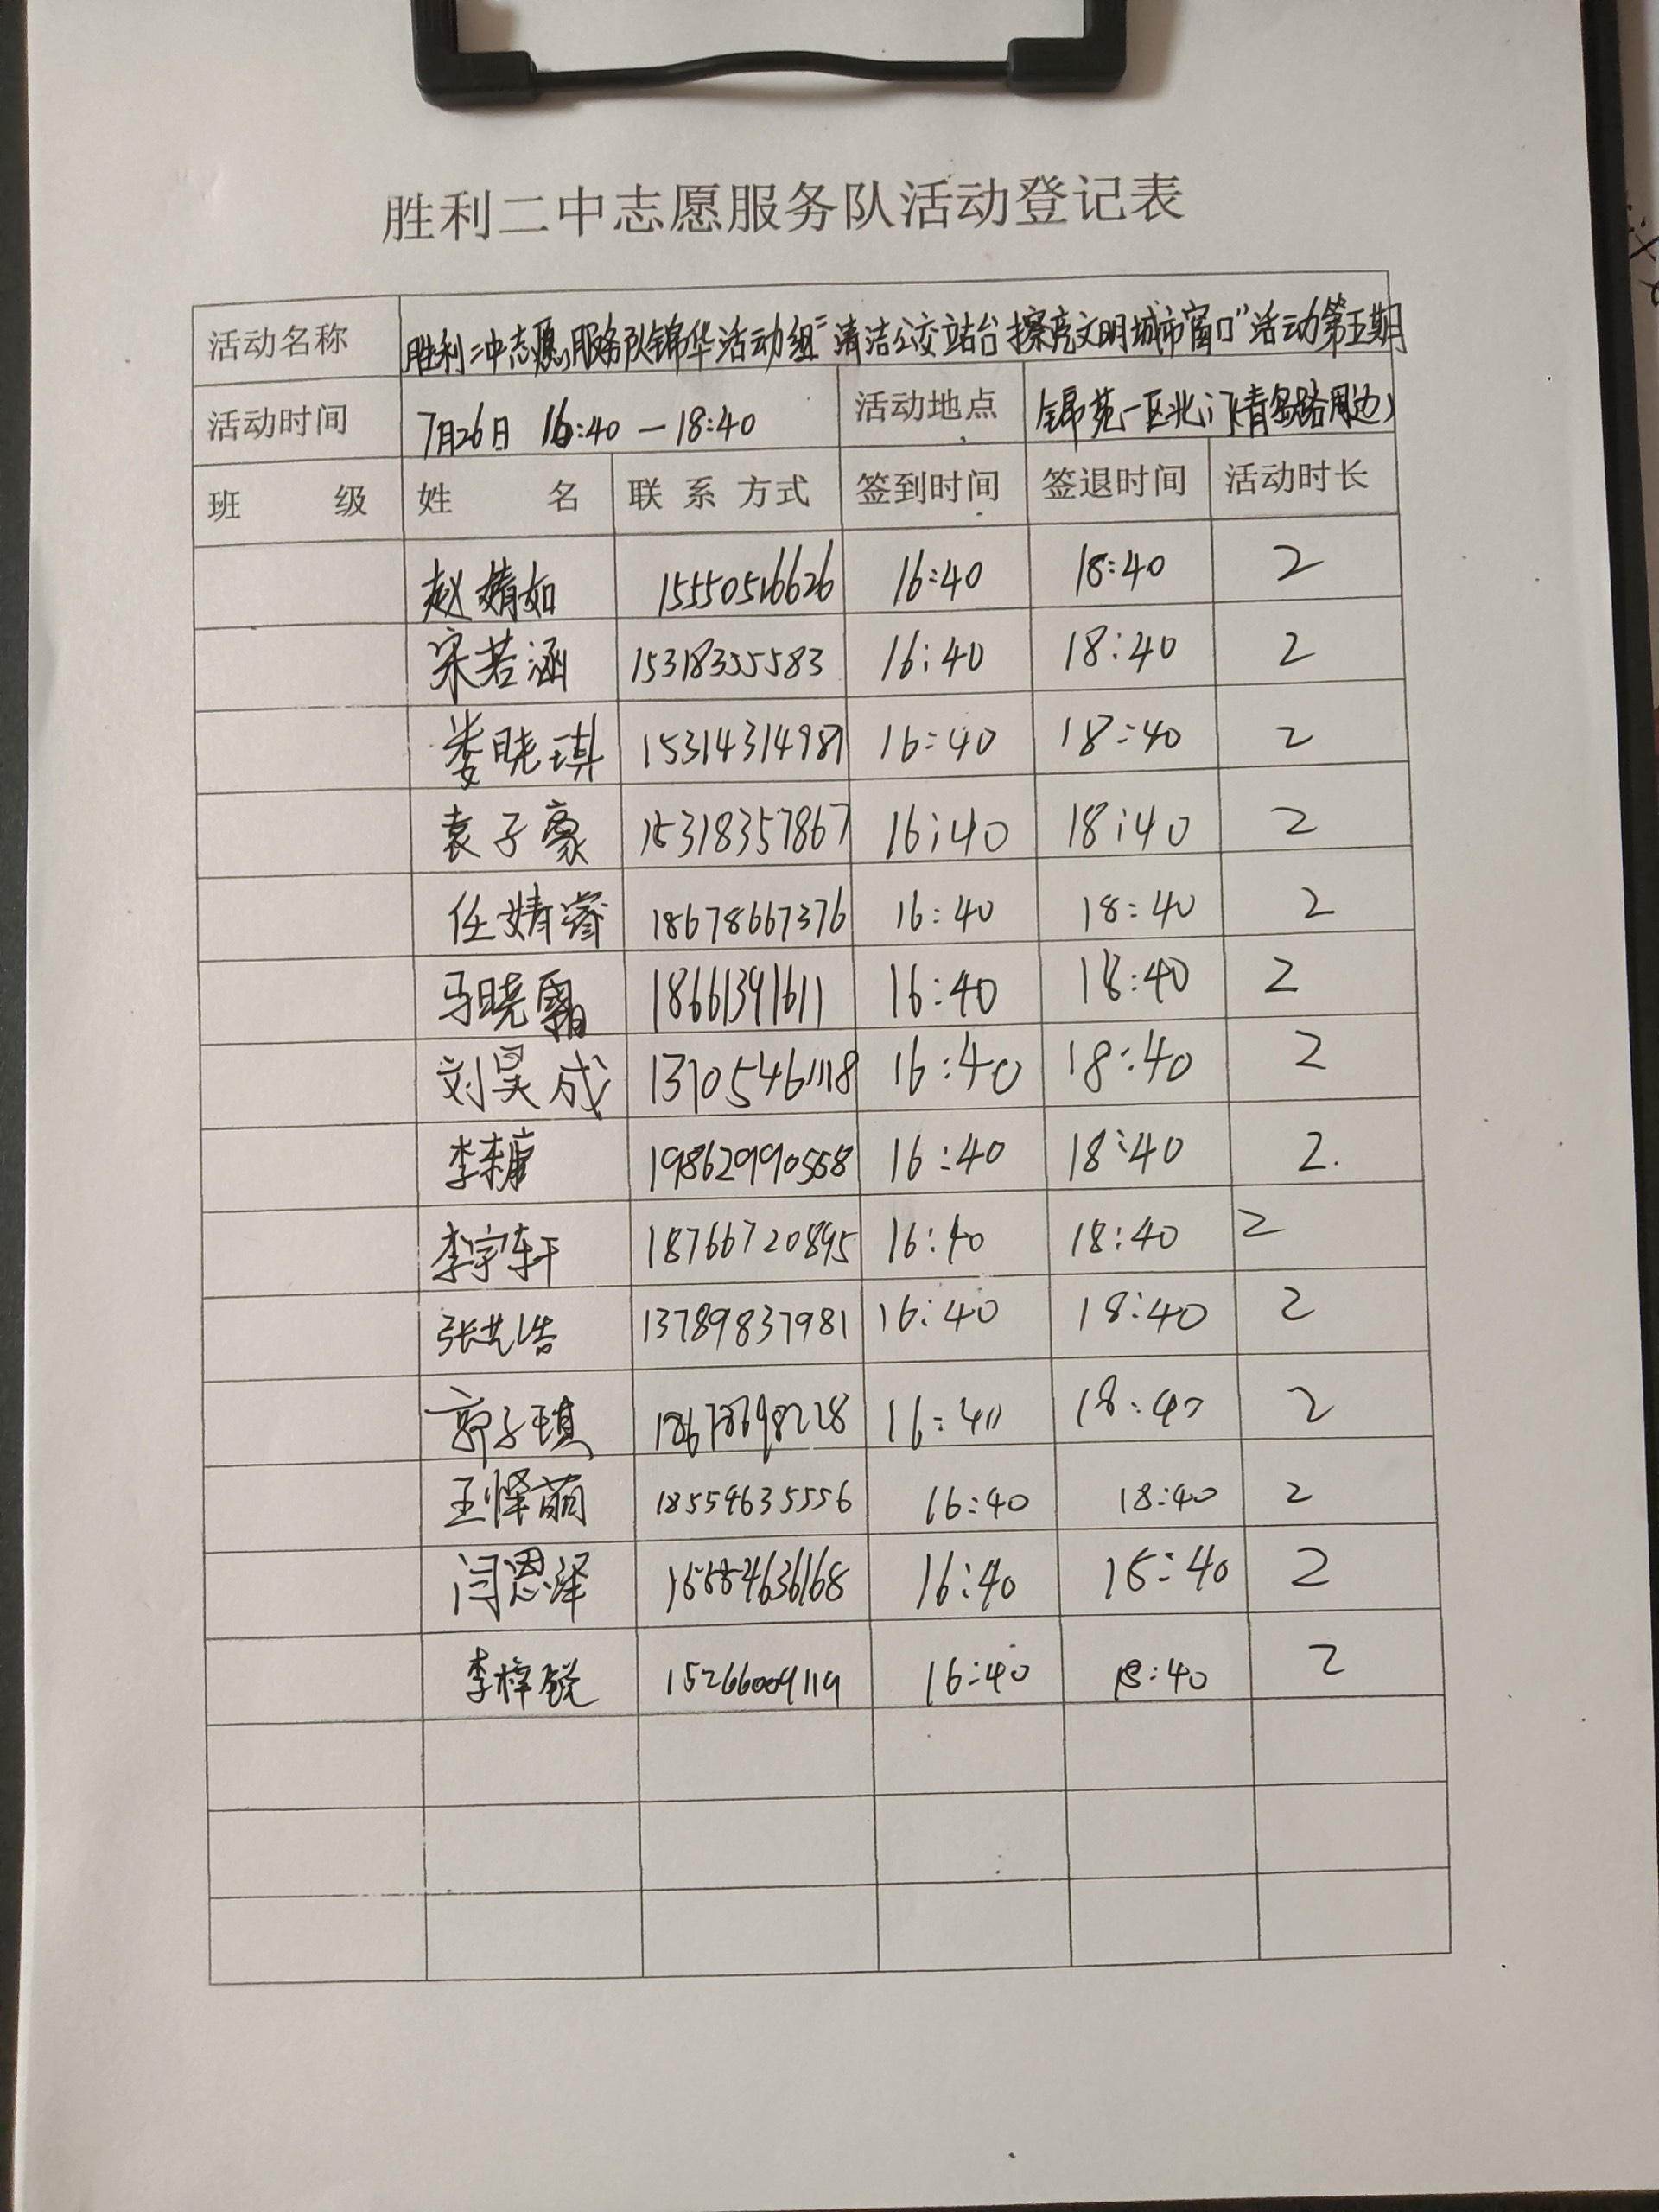 胜利二中志愿服务队活动登记表
活动名称 胜利二中志愿服务队锦华活动组“清洁公交站台 擦亮文明城市窗口”活动第五期
活动时间 7月26日 16:40—18:40 活动地点 锦苑一区北门(青岛路周边)
班 级 姓 名 联系方式 签到时间 签退时间 活动时长
赵婧如 15550516626 16:40 18:40 2
宋若涵 15318355583 16:40 18:40 2
娄晓琪 15314314987 16:40 18:40 2
袁子豪 15318357867 16:40 18:40 2
任婧睿 18678667376 16:40 18:40 2
马晓霜 18661391611 16:40 18:40 2
刘昊成 13705461118 16:40 18:40 2
19862990558 16:40 18:40 2.
李宇轩 18766720895 16:40 18:40 2
张艺浩 13789837981 16:40 18:40 2
郭子琪 16:40 18:40 2
王怿萌 18554635556 16:40 18:40 2
闫恩泽 16:40 2
李梓锐 15266009119 16:40 18:40 2